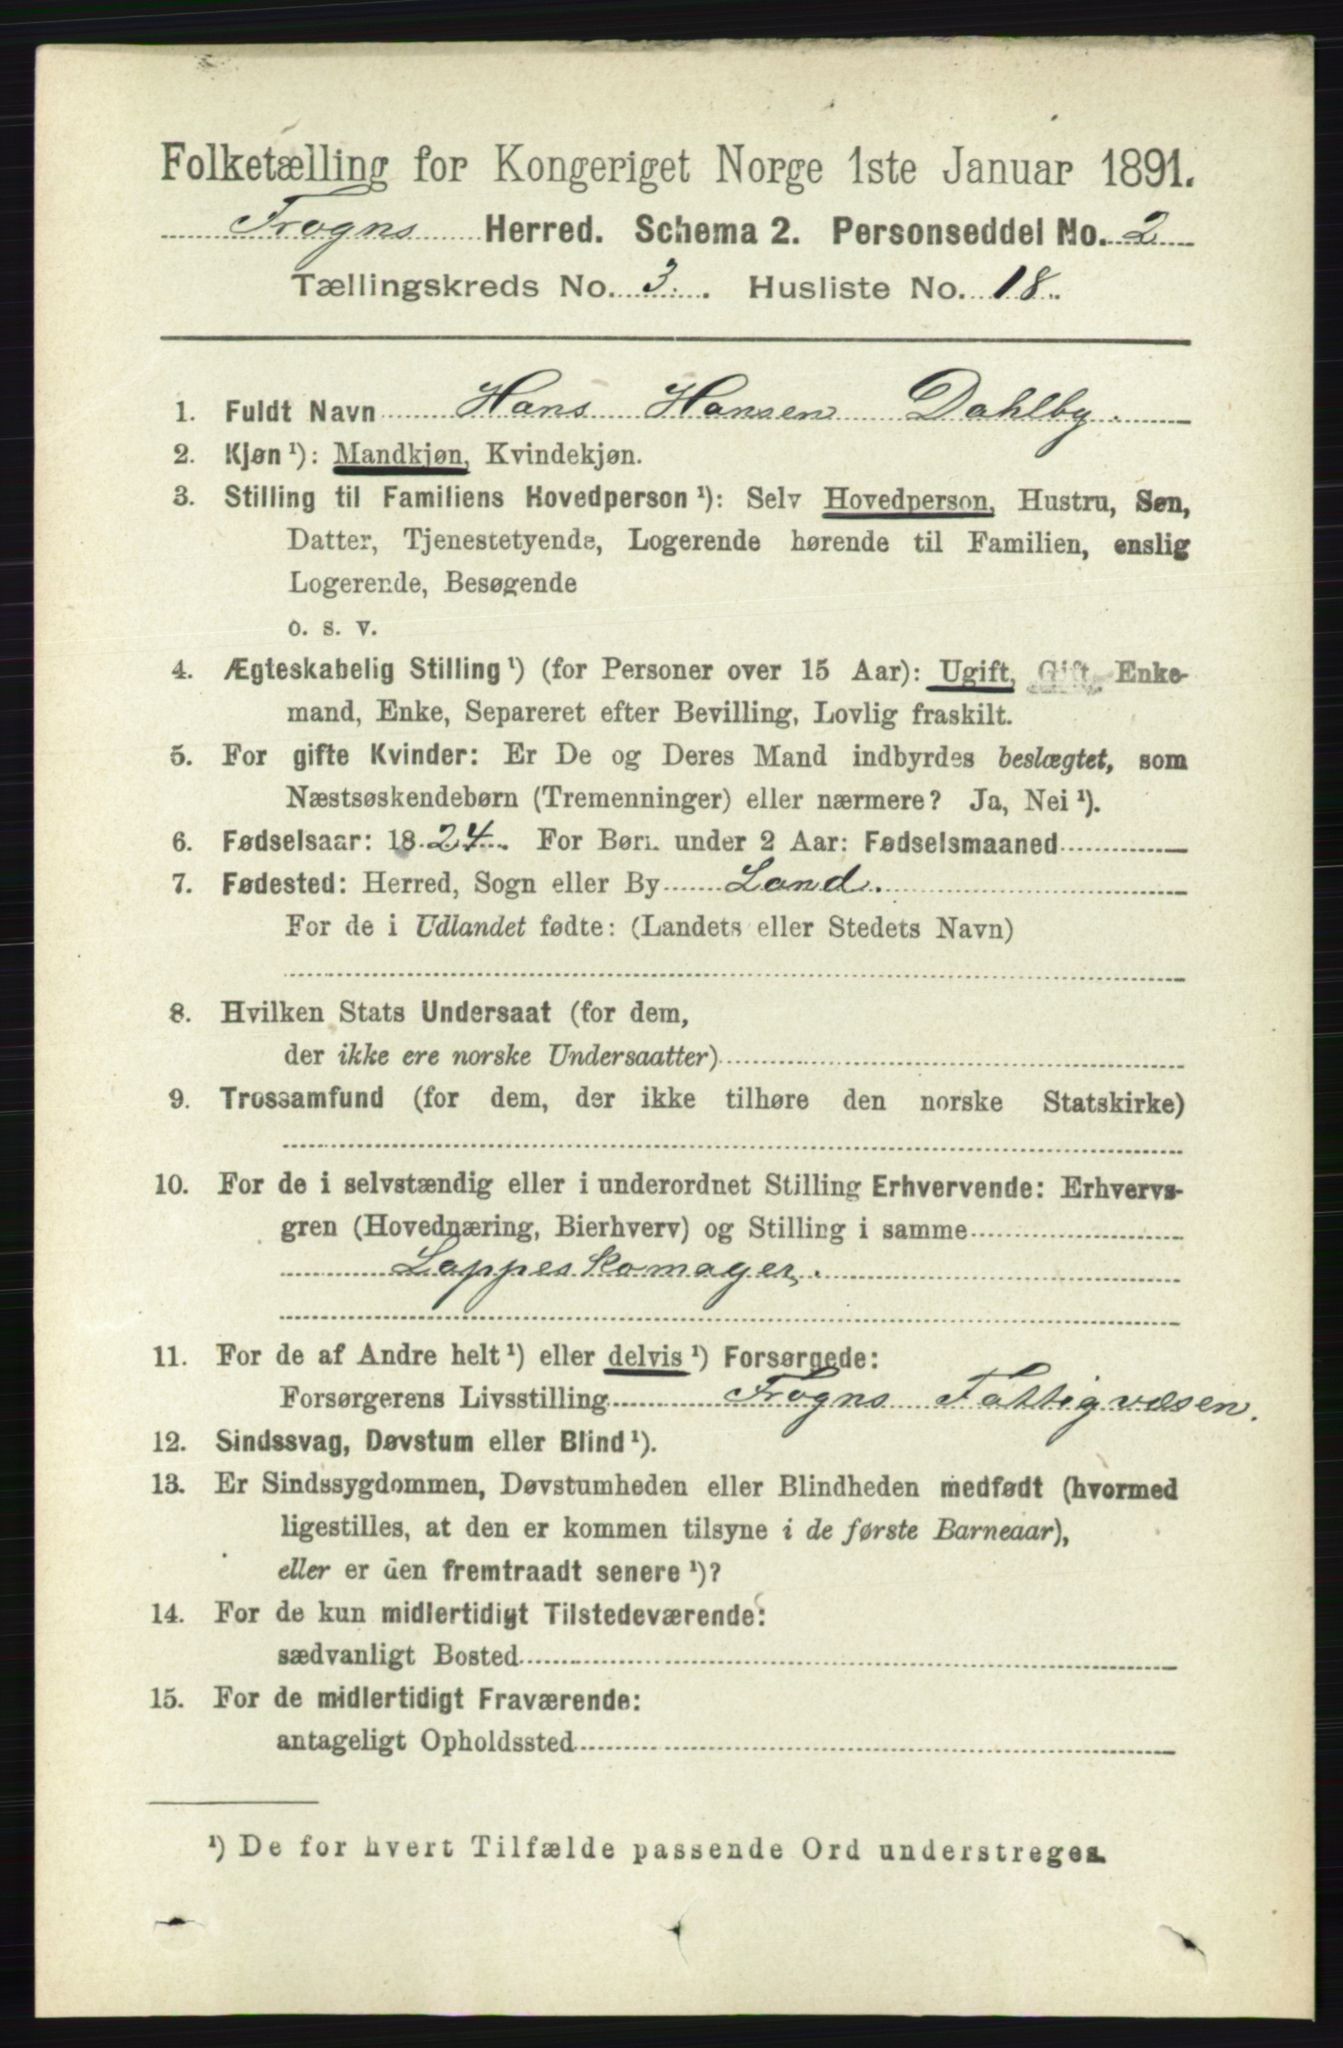 Folketælling for Kongeriget Norge 1ste Januar 1891.
Frogns Herred. Schema 2. Personseddel No. 2
Tællingskreds No. 3. Husliste No. 18.
1. Fuldt Navn Hans Hansen Dahlby.
2. Kjøn ¹): Mandkjøn, Kvindekjøn.
3. Stilling til Familiens Hovedperson ¹): Selv Hovedperson, Hustru, Søn,
Datter, Tjenestetyende, Logerende hørende til Familien, enslig
Logerende, Besøgende
o. s. v.
4. Ægteskabelig Stilling ¹) (for Personer over 15 Aar): Ugift, Gift, Enke-
mand, Enke, Separeret efter Bevilling, Lovlig fraskilt.
5. For gifte Kvinder: Er De og Deres Mand indbyrdes beslægtet, som
Næstsøskendebørn (Tremenninger) eller nærmere? Ja, Nei ¹).
6. Fødselsaar: 1824. For Børn under 2 Aar: Fødselsmaaned
7. Fødested: Herred, Sogn eller By Land.
For de i Udlandet fødte: (Landets eller Stedets Navn)
8. Hvilken Stats Undersaat (for dem,
der ikke ere norske Undersaatter)
9. Trossamfund (for dem, der ikke tilhøre den norske Statskirke)
10. For de i selvstændig eller i underordnet Stilling Erhvervende: Erhvervs-
gren (Hovednæring, Bierhverv) og Stilling i samme
Lappeskomager.
11. For de af Andre helt ¹) eller delvis ¹) Forsørgede:
Forsørgerens Livsstilling Frogns Fattigvæsen.
12. Sindssvag, Døvstum eller Blind ¹).
13. Er Sindssygdommen, Døvstumheden eller Blindheden medfødt (hvormed
ligestilles, at den er kommen tilsyne i de første Barneaar),
eller er den fremtraadt senere ¹)?
14. For de kun midlertidigt Tilstedeværende:
sædvanligt Bosted
15. For de midlertidigt Fraværende:
antageligt Opholdssted
¹) De for hvert Tilfælde passende Ord understreges.